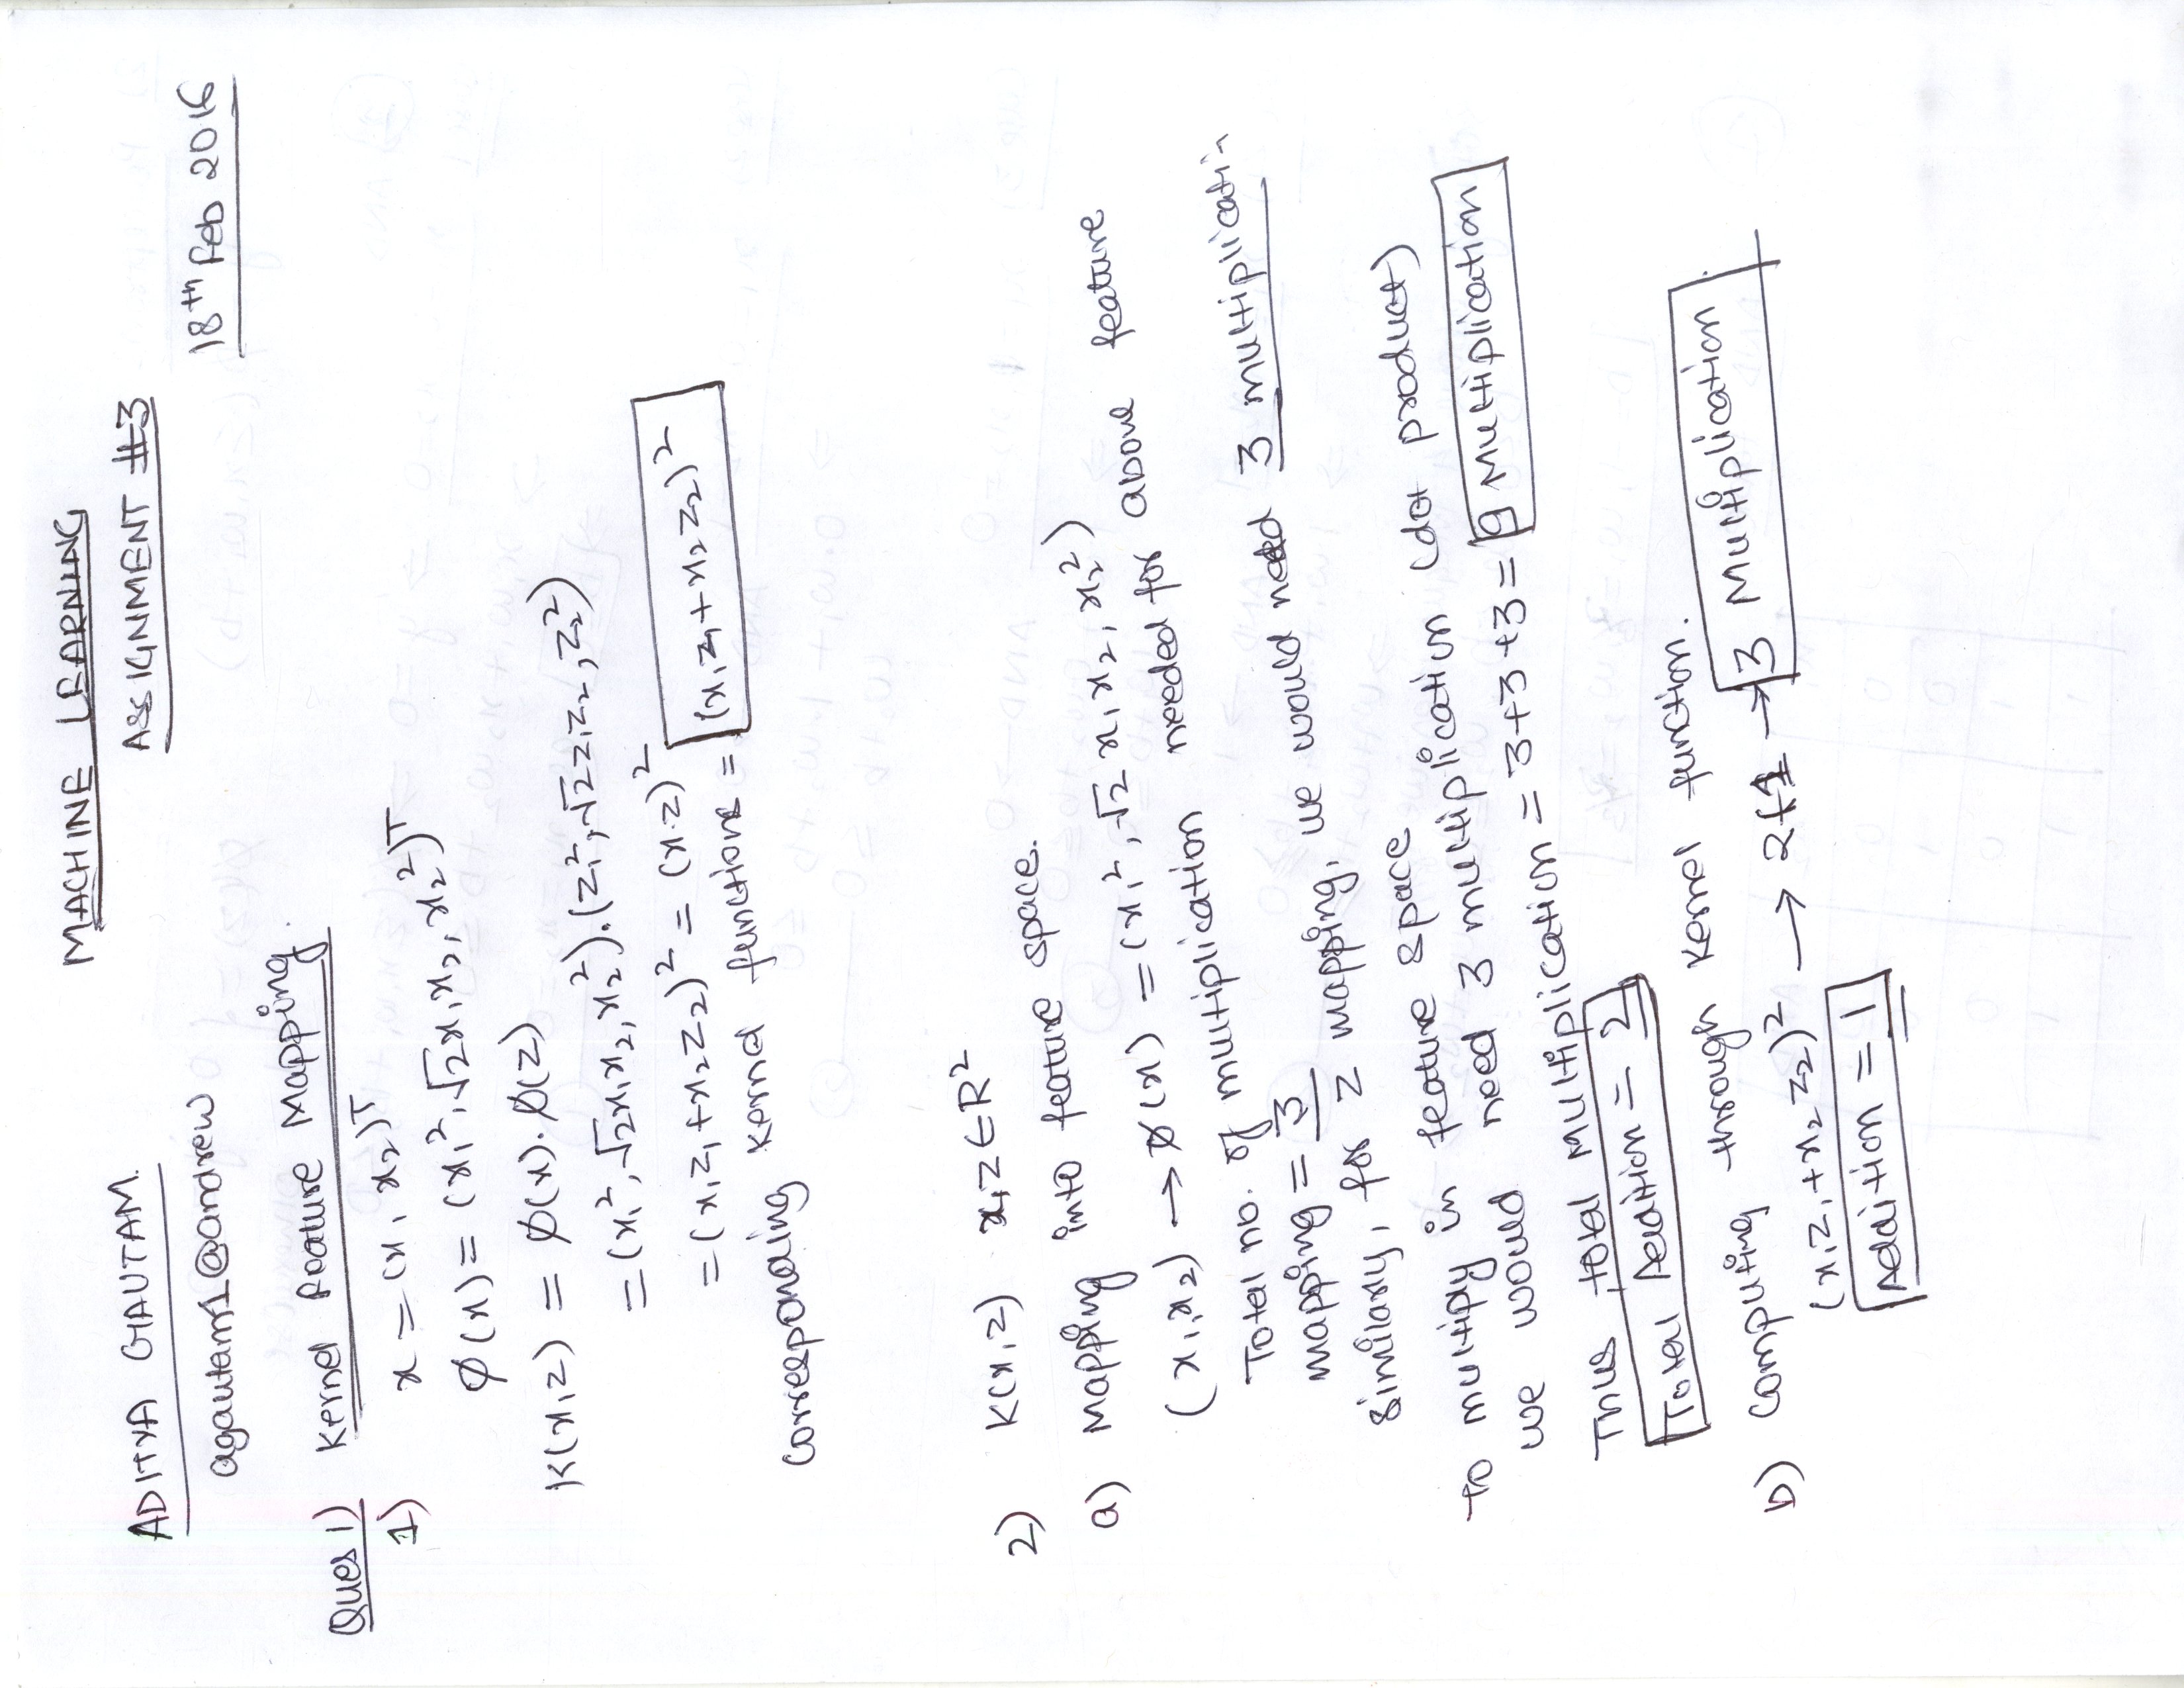 MACHINE LEARNING
ADITYA GAUTAM.
ASSIGNMENT #3
agautam1@andrew
18th Feb 2016
Ques 1) Kernel feature Mapping.
1) x = (x1 x2)^T
Ø(x) = (x1², √2x1x2, x2²)^T
K(x,z) = Ø(x).Ø(z)
= (x1², √2x1x2, x2²).(z1², √2z1z2, z2²)
= (x1z1+x2z2)² = (x.z)²
corresponding kernel functions = (x1z1+x2z2)²
2) K(x,z) x,z ∈ R²
a) Mapping into feature space.
(x1,x2) → Ø(x) = (x1², √2 x1x2, x2²)
Total no. of multiplication needed for above feature
mapping = 3
Similary, for z mapping, we would need 3 multiplicati-
To multiply in feature space
we would need 3 multiplication (dot product)
Thus total Multiplication = 3+3+3 = 9 Multiplication
Total Addition = 2
b) Computing through Kernel function.
(x1z1+x2z2)² → 2+1 → 3 Multiplication
Addition = 1